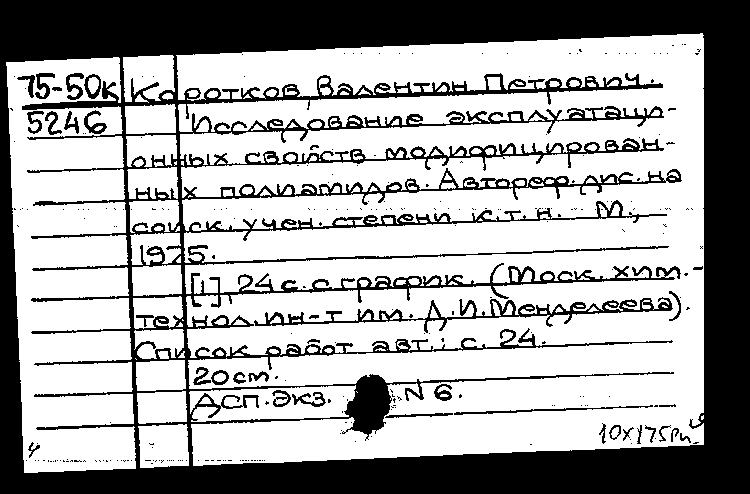 75-50к Коротков, Валентин Петрович.
5246 Исследование эксплуатаци-
онных свойств модифицирован-
ных полиамидов. Автореф. дис. на
соиск. учен. степени к.т.н. М.,
1975.
[1], 24 с. с график. (Моск. хим.-
технол. ин-т им. Д.И. Менделеева).
Список работ авт.: с. 24.
20 см.
ДСП. Экз. N 6.